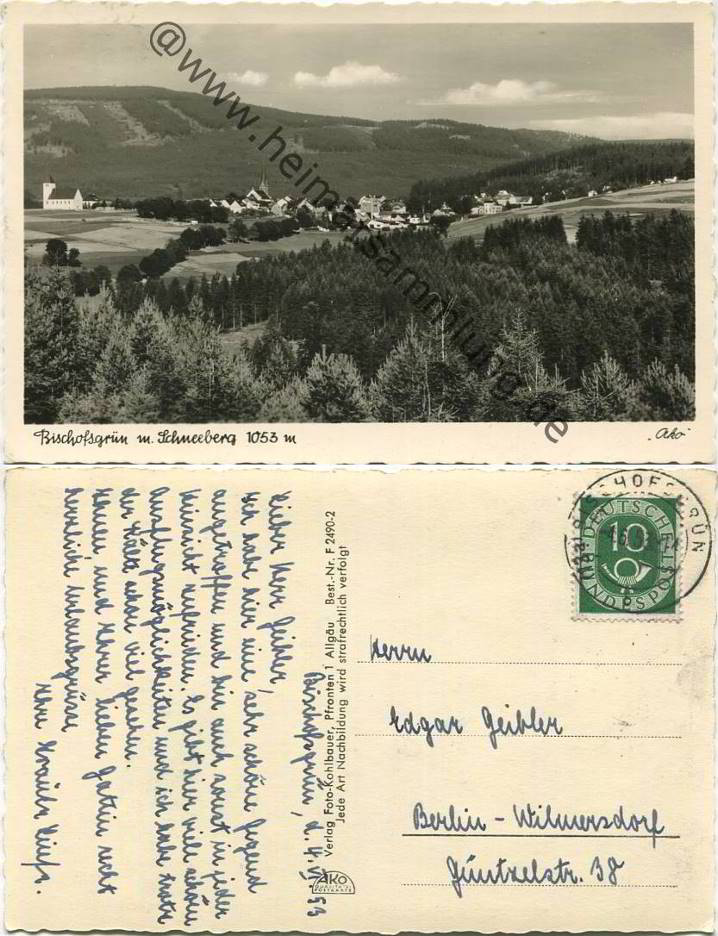 @www.heimatsammlung.de
Bischofsgrün m. Schneeberg 1053 m
„Ako"
BISCHOFSGRÜN
DEUTSCHE
10
BUNDESPOST
Bischofsgrün, d. 4. 53
Lieber Herr Geibler,
ich habe hier eine sehr schöne Gegend
angetroffen und bin auch sonst in jeder
Hinsicht zufrieden. Es gibt hier viel schöne
Ausflugsmöglichkeiten und ich habe trotz
der Kälte schon viel gesehen.
Ihnen und Ihrer lieben Gattin recht
herzliche Urlaubsgrüsse
Ihre
Verlag Foto-Kohlbauer, Pfronten 1 Allgäu Best.-Nr. F 2490-2
Jede Art Nachbildung wird strafrechtlich verfolgt
AKO
QUALITÄTS
POSTKARTE
Herrn
Edgar Geibler
Berlin - Wilmersdorf
Güntzelstr. 38